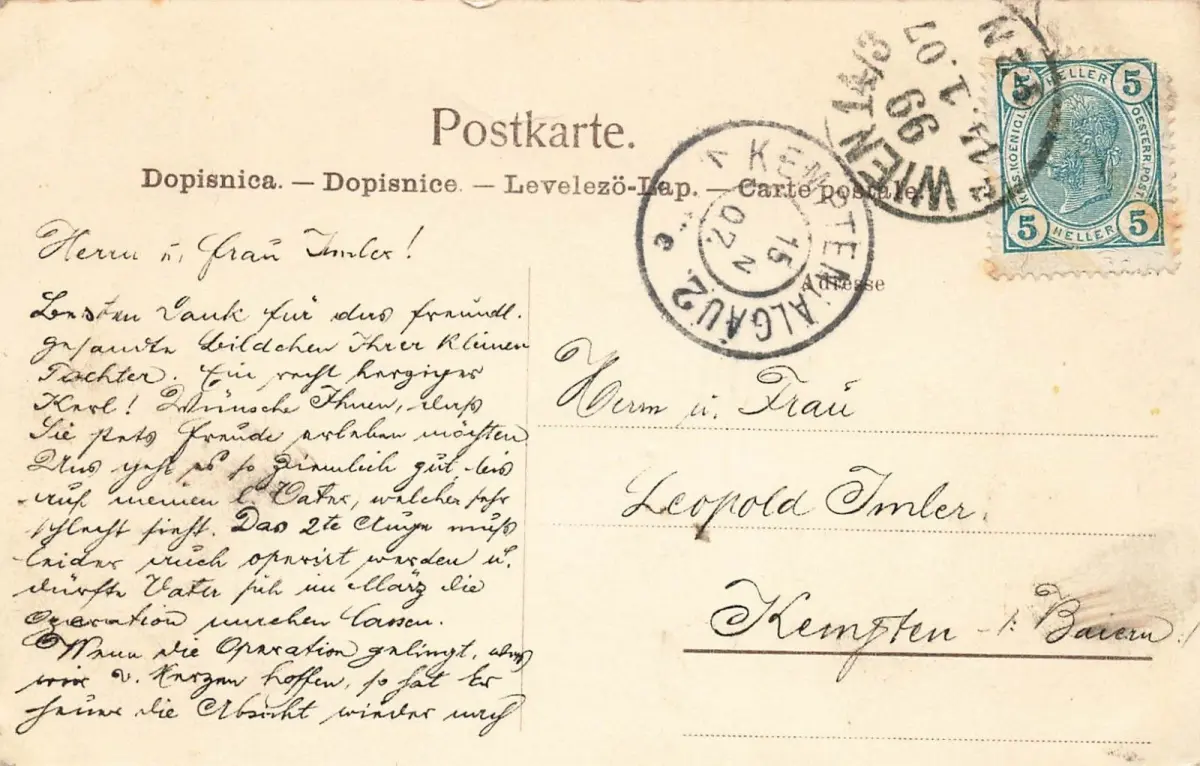 Postkarte.
Dopisnica. — Dopisnice. — Levelezö-Lap. — Carte postale.
WIEN 14/3
99
14.1.07
WIEN
5 HELLER 5
KAIS. KOENIGL. OESTERR. POST
5 HELLER 5
KEMPTEN ALGÄU 2
15
07
Adresse
Herrn u. Frau Imler!
Besten Dank für das freundl.
gesandte Bildchen Ihrer kleinen
Tochter. Ein recht herziger
Kerl! Wünsche Ihnen, daß
Sie stets Freude erleben möchten
Uns geht es so ziemlich gut, bis
auf meinen l. Vater, welcher sehr
schlecht sieht. Das 2te Auge muß
leider auch operirt werden u.
dürfte Vater sich im März die
Operation machen lassen.
Wenn die Operation gelingt, was
wir v. Herzen hoffen, so hat Er
heuer die Absicht wieder nach
Herrn u. Frau
Leopold Imler.
Kempten i. Baiern.